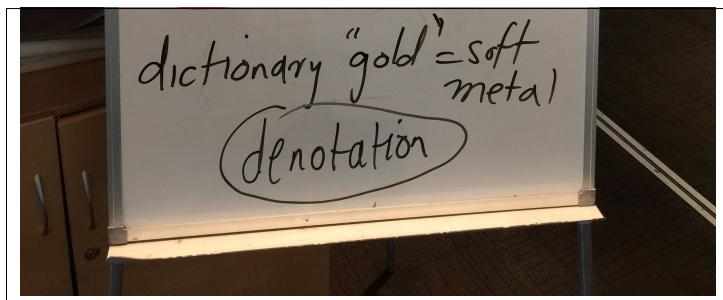 dictionary "gold" = soft
metal
denotation